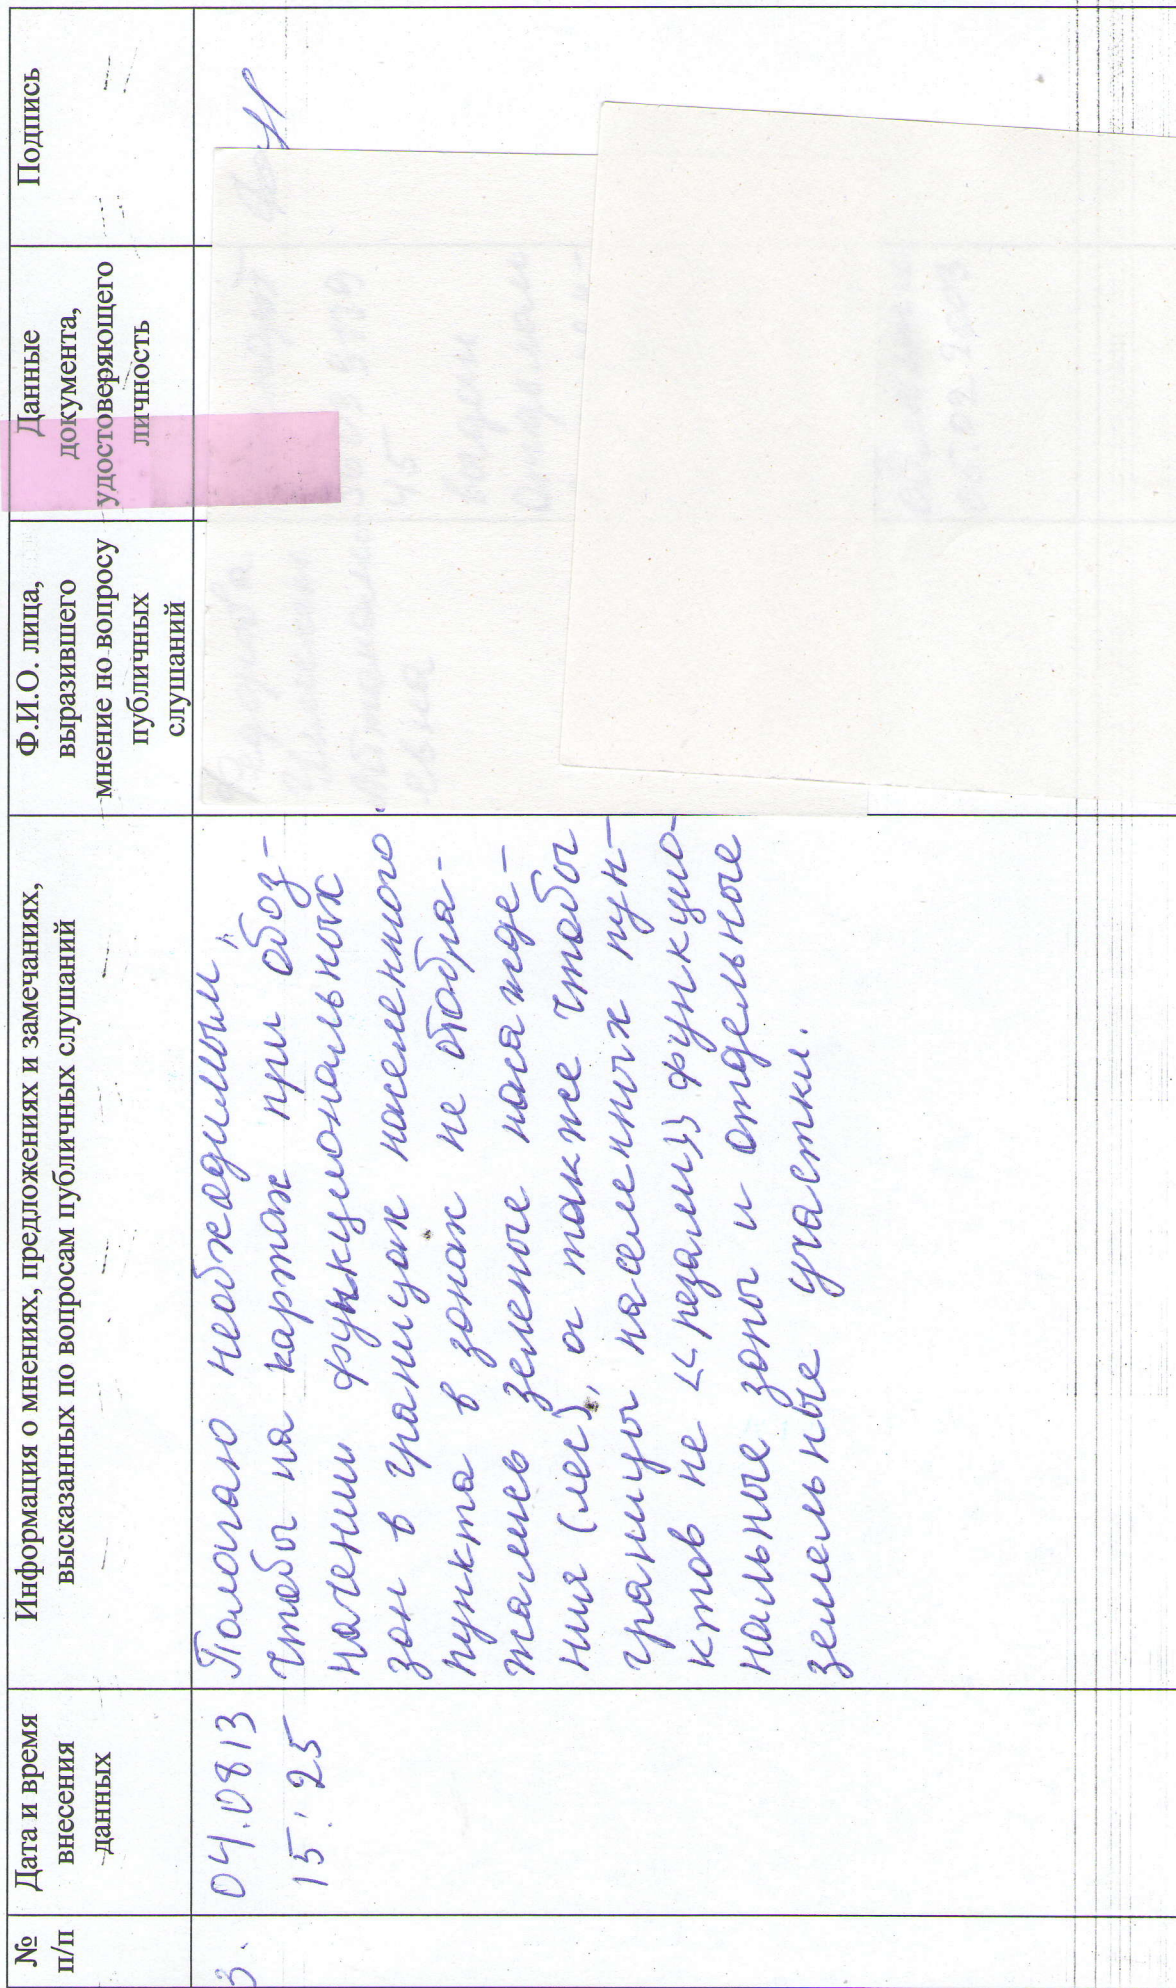 №
п/п
Дата и время
внесения
данных
Информация о мнениях, предложениях и замечаниях,
высказанных по вопросам публичных слушаний
Ф.И.О. лица,
выразившего
мнение по вопросу
публичных
слушаний
Данные
документа,
удостоверяющего
личность
Подпись
3.
04.0813
15:25
Полагаю необходимым,
чтобы на картах при обоз-
начении функциональных
зон в границах населенного
пункта в зонах не отобра-
жались зеленые насажде-
ния (лес), а также чтобы
границы населенных пун-
ктов не «резали» функцио-
нальные зоны и отдельные
земельные участки.